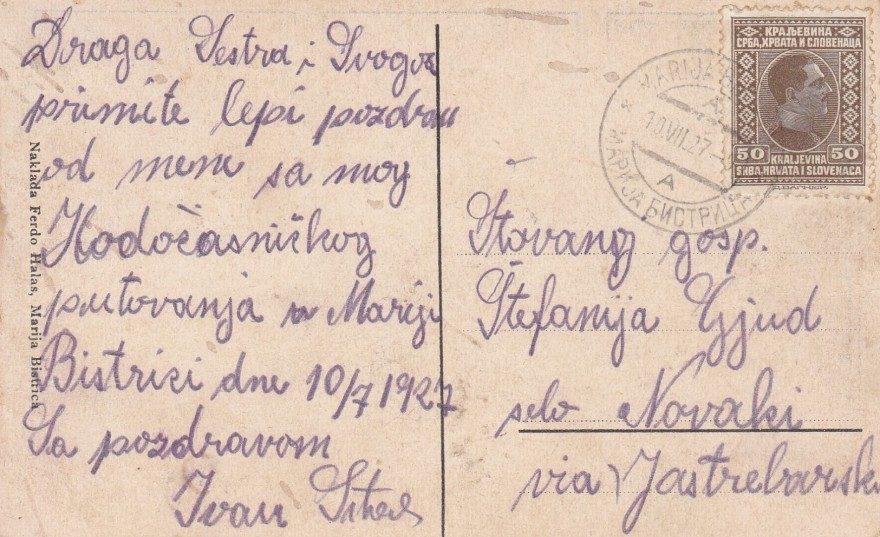 Draga Sestra i Svogor
primite lepi pozdrav
od mene sa mog
Hodočasničkog
putovanja u Mariji
Bistrici dne 10/7 1927
Sa pozdravom
Ivan
Naklada Ferdo Halas, Marija Bistrica
КРАЉЕВИНА
СРБА, ХРВАТА И СЛОВЕНАЦА
50 50
KRALJEVINA
SRBA, HRVATA I SLOVENACA
MARIJA
A
10.VII.27
A
МАРИЈА БИСТРИЦА
Štovanoj gosp.
Štefanija Gjud
selo Novaki
via Jastrebarsko